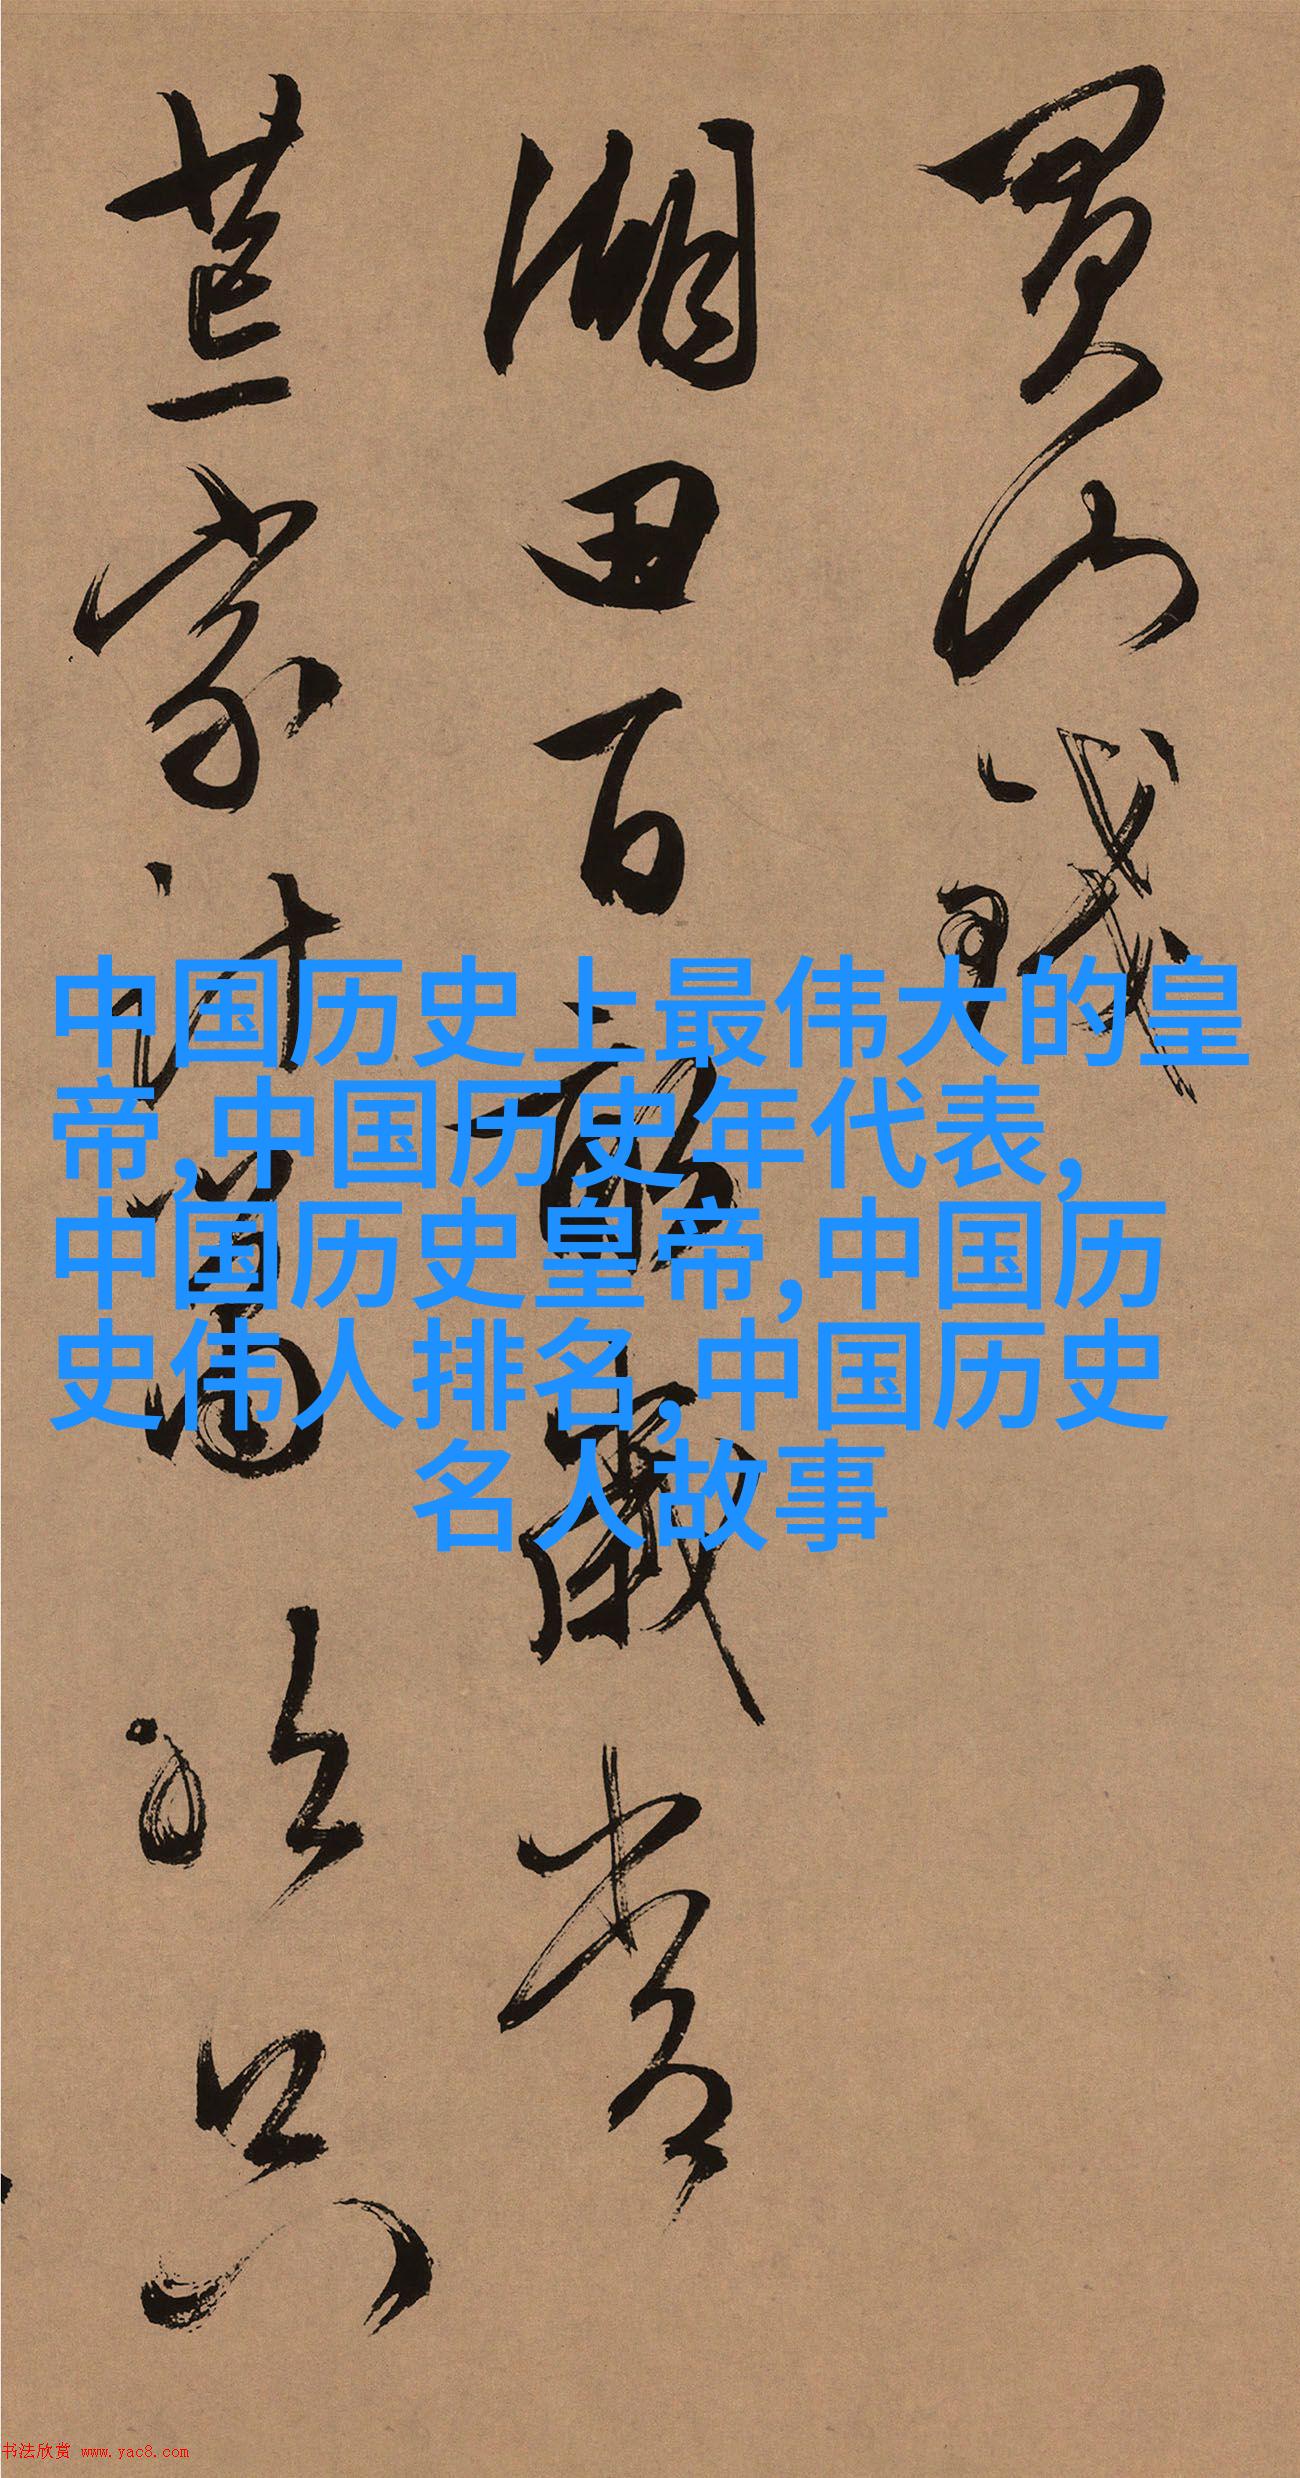 買山錢
湖田百畝歲常
荒一家計
中国历史上最伟大的皇
帝,中国历史年代表,
中国历史皇帝,中国历
史伟人排名,中国历史
名人故事
书法欣赏 www.yac8.com